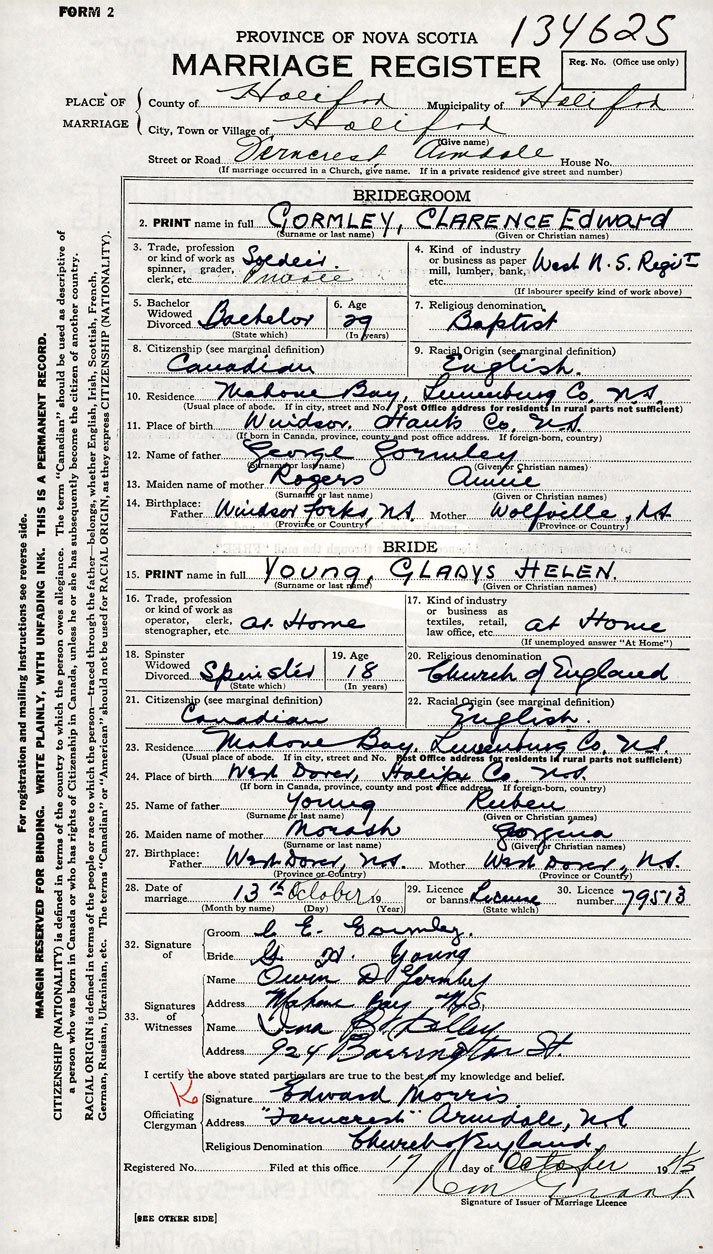 FORM 2
134625
PROVINCE OF NOVA SCOTIA
MARRIAGE REGISTER
Reg. No. (Office use only)
PLACE OF MARRIAGE
County of Halifax Municipality of Halifax
City, Town or Village of Halifax
(Give name)
Street or Road Ferncrest Armdale House No.
(If marriage occurred in a Church, give name. If in a private residence give street and number)
BRIDEGROOM
2. PRINT name in full GORMLEY, CLARENCE Edward
(Surname or last name) (Given or Christian names)
3. Trade, profession or kind of work as spinner, grader, clerk, etc. Soldier Private
4. Kind of industry or business as paper mill, lumber, bank, etc. West N.S. Regi't
(If labourer specify kind of work above)
5. Bachelor Widowed Divorced Bachelor
(State which)
6. Age 29
(In years)
7. Religious denomination Baptist
8. Citizenship (see marginal definition) Canadian
9. Racial Origin (see marginal definition) English.
10. Residence Mahone Bay, Lunenburg Co. N.S.
(Usual place of abode. If in city, street and No. Post Office address for residents in rural parts not sufficient)
11. Place of birth Windsor. Hants Co. N.S.
(If born in Canada, province, county and post office address. If foreign-born, country)
12. Name of father George Gormley
(Surname or last name) (Given or Christian names)
13. Maiden name of mother Rogers Annie
(Surname or last name) (Given or Christian names)
14. Birthplace: Father Windsor Forks, N.S. Mother Wolfville, N.S.
(Province or Country) (Province or Country)
BRIDE
15. PRINT name in full YOUNG, GLADYS HELEN.
(Surname or last name) (Given or Christian names)
16. Trade, profession or kind of work as operator, clerk, stenographer, etc. at Home
17. Kind of industry or business as textiles, retail, law office, etc. at Home
(If unemployed answer "At Home")
18. Spinster Widowed Divorced Spinster
(State which)
19. Age 18
(In years)
20. Religious denomination Church of England
21. Citizenship (see marginal definition) Canadian
22. Racial Origin (see marginal definition) English.
23. Residence Mahone Bay, Lunenburg Co. N.S.
(Usual place of abode. If in city, street and No. Post Office address for residents in rural parts not sufficient)
24. Place of birth West Dover, Halifax Co. N.S.
(If born in Canada, province, county and post office address. If foreign-born, country)
25. Name of father Young Ruben
(Surname or last name) (Given or Christian names)
26. Maiden name of mother Morash Georgina
(Surname or last name) (Given or Christian names)
27. Birthplace: Father West Dover, N.S. Mother West Dover, N.S.
(Province or Country) (Province or Country)
28. Date of marriage 13th October 19
(Month by name) (Day) (Year)
29. Licence or banns License
(State which)
30. Licence number 79513
32. Signature of
Groom C. E. Gormley.
Bride G. H. Young
33. Signatures of Witnesses
Name Owen D Gormley
Address Mahone Bay N.S.
Name
Address 924 Barrington St.
I certify the above stated particulars are true to the best of my knowledge and belief.
Officiating Clergyman
Signature Edward Morris
Address "Ferncrest" Armdale, N.S.
Religious Denomination Church of England
Registered No. Filed at this office 17 day of October 1945
Signature of Issuer of Marriage Licence
[SEE OTHER SIDE]
For registration and mailing instructions see reverse side.
MARGIN RESERVED FOR BINDING. WRITE PLAINLY, WITH UNFADING INK. THIS IS A PERMANENT RECORD.
CITIZENSHIP (NATIONALITY) is defined in terms of the country to which the person owes allegiance. The term "Canadian" should be used as descriptive of
a person who was born in Canada or who has rights of Citizenship in Canada, unless he or she has subsequently become the citizen of another country.
RACIAL ORIGIN is defined in terms of the people or race to which the person—traced through the father—belongs, whether English, Irish, Scottish, French,
German, Russian, Ukrainian, etc. The terms "Canadian" or "American" should not be used for RACIAL ORIGIN, as they express CITIZENSHIP (NATIONALITY).